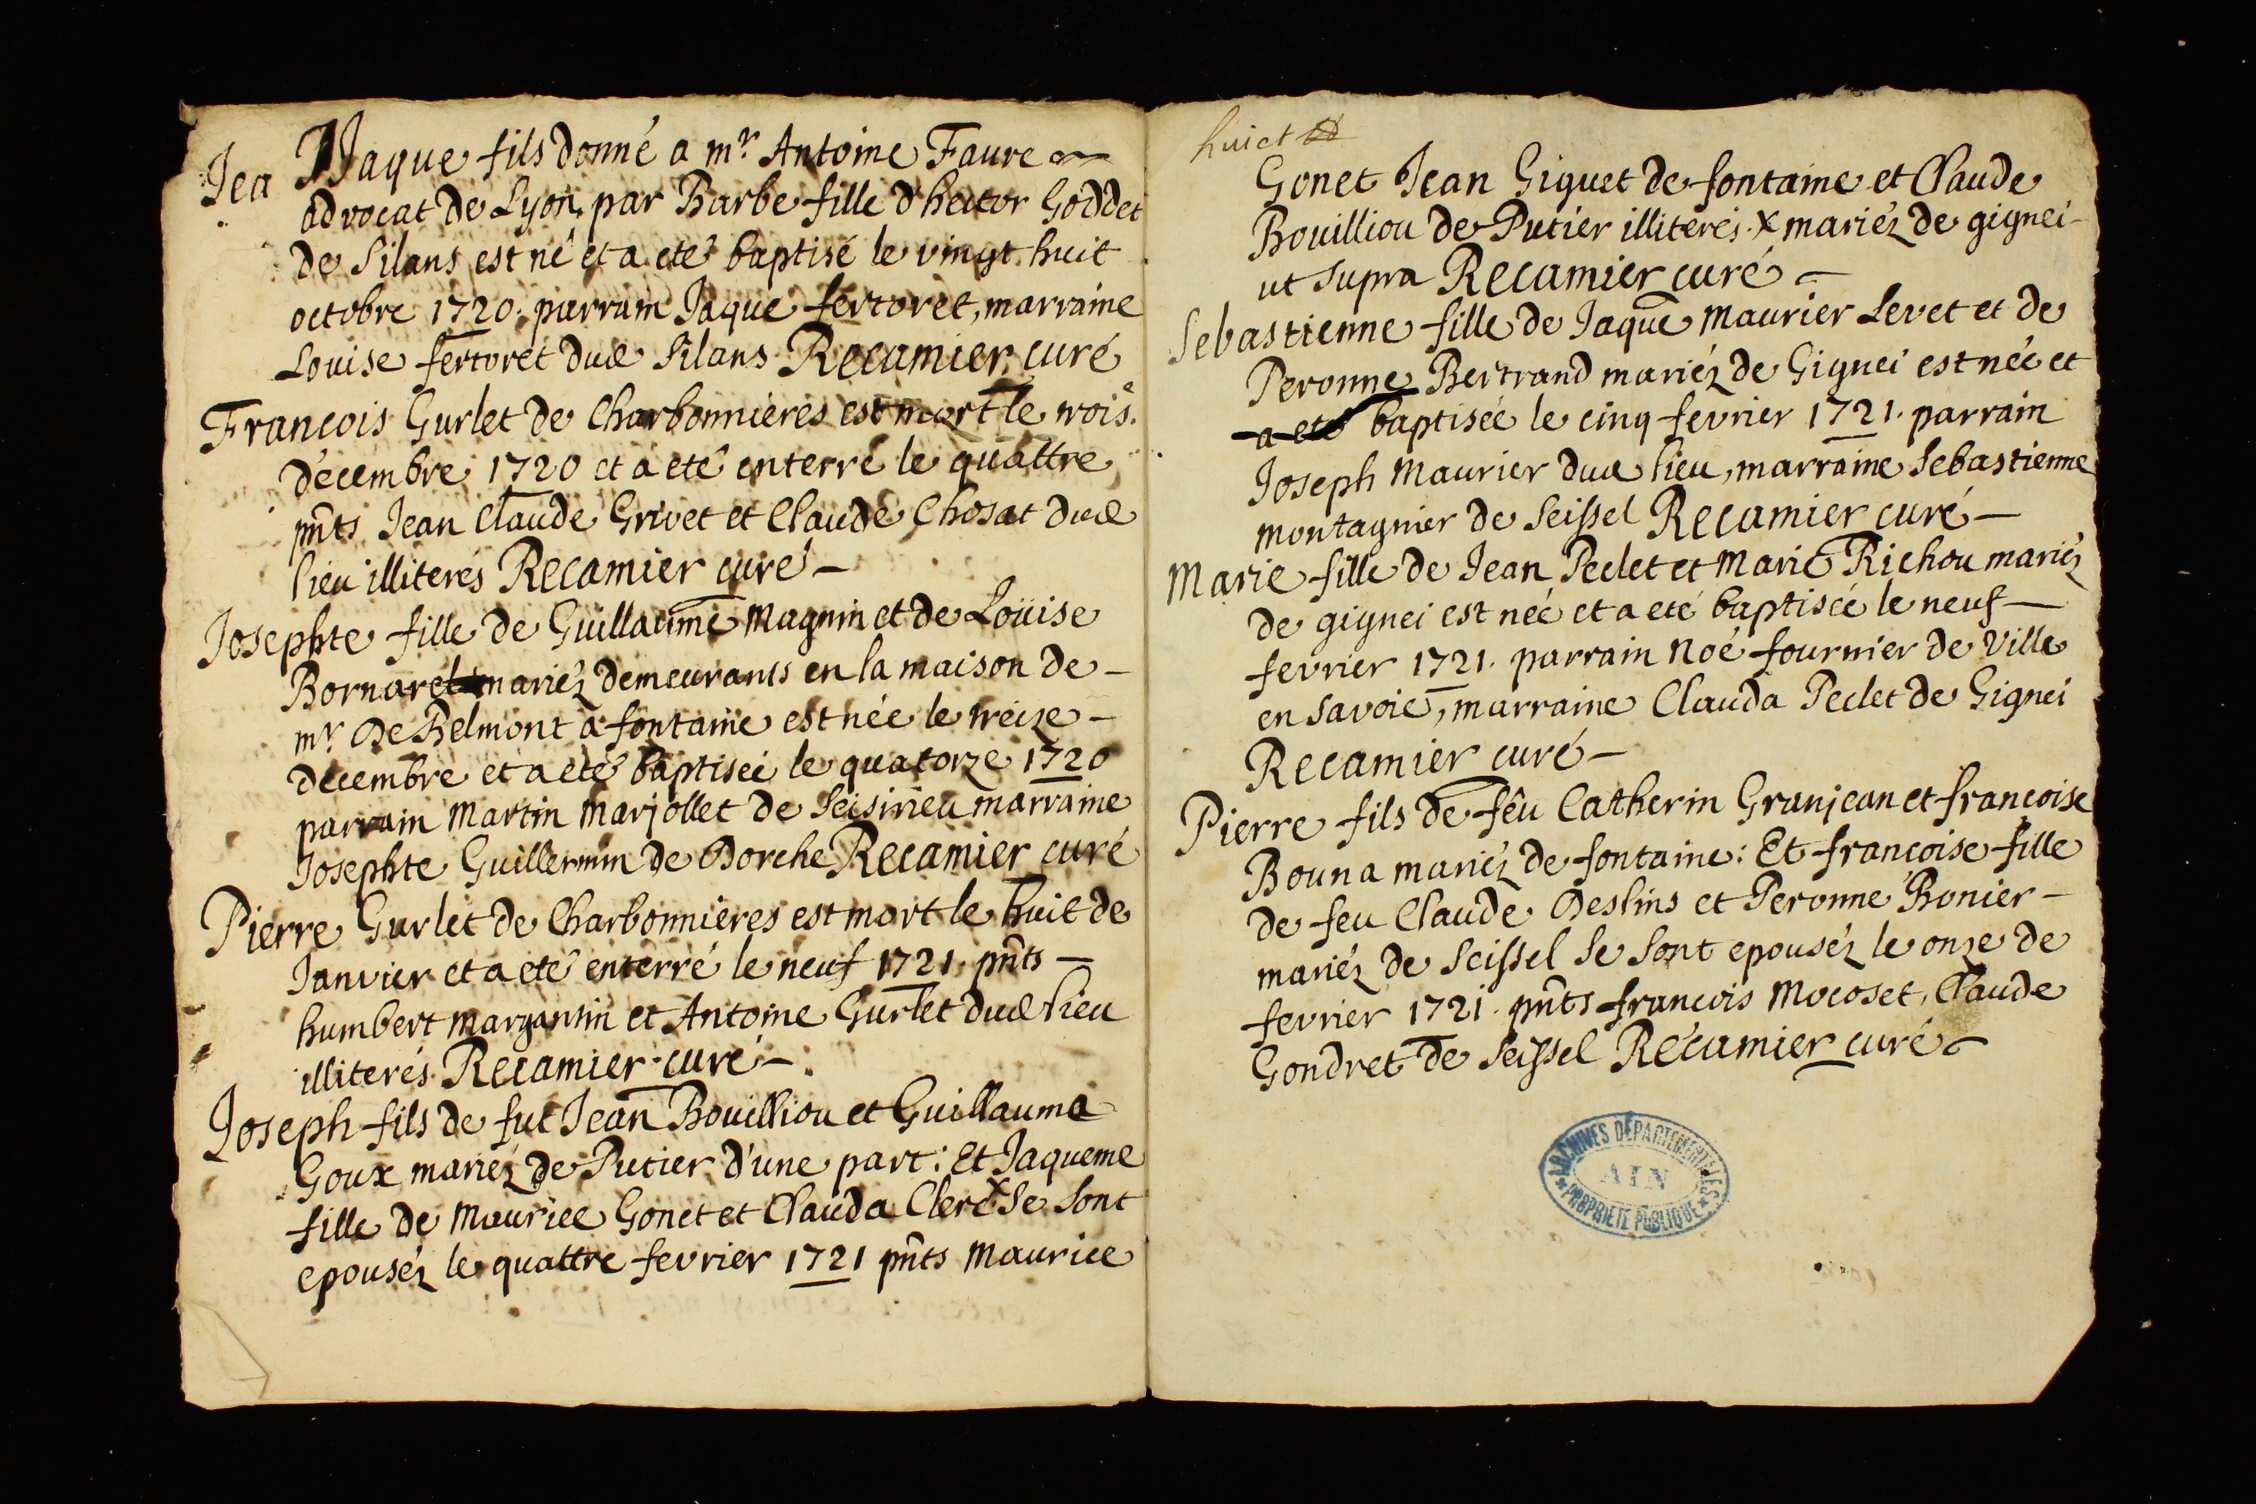 Jea Jaque fils donné a mr Antoine Faure
advocat de Lyon, par Barbe fille d'hector Goddet
de Silans est né et a eté baptisé le vingt huit
octobre 1720. parrain Jaque fertoret, marraine
Louise fertoret dud Silans Recamier curé
Francois Gurlet de Charbonnieres est mort le trois.e
decembre 1720 et a eté enterré le quattre
pnts Jean Claude Grivet et Claude Chosat dud
lieu illiterés Recamier curé
Josephte fille de Guillaume Magnin et de Loüise
Bornarel mariéz demeurants en la maison de
mr De Belmont a fontaine est née le treize
decembre et a eté baptiseé le quatorze 1720
parrain Martin Marjollet de Seisirieu marraine
Josephte Guillermin de Dorche Recamier curé
Pierre Gurlet de Charbonnieres est mort le huit de
Janvier et a eté enterré le neuf 1721. pnts
humbert margantin et Antoine Gurlet dud lieu
illiterés Recamier curé
Joseph fils de fut Jean Bouilliou et Guillauma
Goux mariéz de Putier d'une part: Et Jaqueme
fille de Maurice Gonet et Clauda Clerc x Se Sont
epouséz le quattre fevrier 1721 pnts Maurice
huict
Gonet Jean Giguet de fontaine et Claude
Bouilliou de Putier illiterés. x mariéz de gignei
ut supra Recamier curé
Sebastienne fille de Jaque Maurier Levet et de
Peronne Bertrand mariéz de Gignei est née et
a eté baptiseé le cinq fevrier 1721. parrain
Joseph Maurier dud lieu, marraine Sebastienne
montagnier de Seissel Recamier curé
Marie fille de Jean Peclet et Marie Richou mariéz
de gignei est neé et a eté baptiseé le neuf
fevrier 1721. parrain Noé fournier de Ville
en Savoie, marraine Clauda Peclet de Gignei
Recamier curé
Pierre fils de feu Catherin Granjean et francoise
Bouna mariéz de fontaine: Et francoise fille
de feu Claude Deslins et Peronne Bonier
mariéz de Seissel Se Sont epouséz le onze de
fevrier 1721. pnts francois Mocoset, Claude
Gondret de Seissel Recamier curé
ARCHIVES DÉPARTEMENTALES
AIN
PROPRIÉTÉ PUBLIQUE